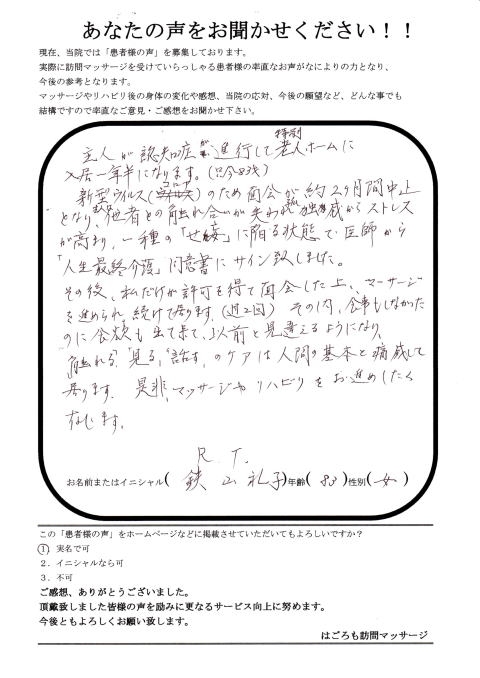 あなたの声をお聞かせください！！
現在、当院では「患者様の声」を募集しております。
実際に訪問マッサージを受けていらっしゃる患者様の率直なお声がなによりの力となり、
今後の参考となります。
マッサージやリハビリ後の身体の変化や感想、当院の応対、今後の願望など、どんな事でも
結構ですので率直なご意見・ご感想をお聞かせ下さい。
主人が認知症が進行して特別老人ホームに
入居一年半になります。(只今83才)
新型ウイルス(コロナ)のため面会が約2ヶ月間中止
となり、他者との触れ合いが失われ孤独感からストレス
が高まり、一種の「せん妄」に陥る状態で医師から
「人生最終介護」同意書にサイン致しました。
その後、私だけが許可を得て面会した上、マッサージ
を進められ続けて居ります。(週2回) その内、食事もしなかった
のに食欲も出て来て、以前と見違えるようになり、
「触れる」「見る」「話す」のケアは人間の基本と痛感して
居ります。是非、マッサージやリハビリをお進めしたく
存じます。
R T.
お名前またはイニシャル( 鉄山礼子)年齢( 83 )性別( 女 )
この「患者様の声」をホームページなどに掲載させていただいてもよろしいですか？
①実名で可
2．イニシャルなら可
3．不可
ご感想、ありがとうございました。
頂戴致しました皆様の声を励みに更なるサービス向上に努めます。
今後ともよろしくお願い致します。
はごろも訪問マッサージ